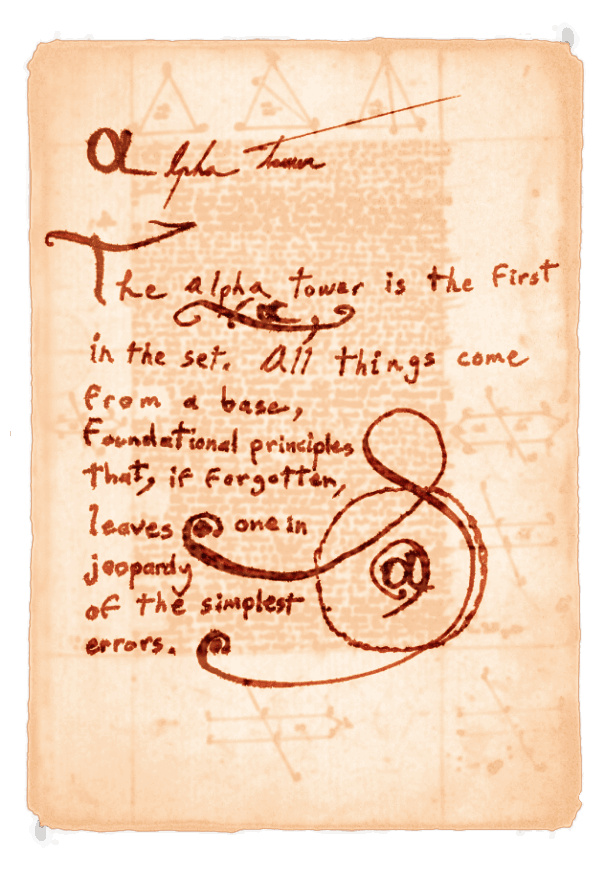 Alpha Tower
The alpha tower is the First
in the set. All things come
From a base,
Foundational principles
that, if Forgotten,
leaves one in
jeopardy
of the simplest
errors.